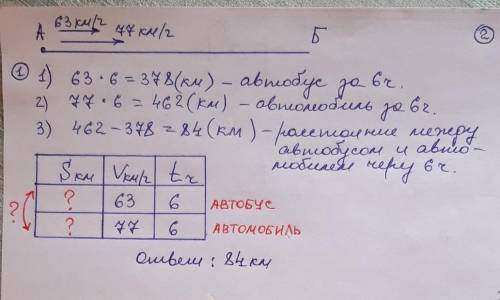 63 км/г
А 77 км/г Б
②
① 1) 63 · 6 = 378 (км) – автобус за 6 г.
2) 77 · 6 = 462 (км) – автомобиль за 6 г.
3) 462 – 378 = 84 (км) – расстояние между
автобусом и авто-
мобилем черу 6 г.
S км V км/г t г
? 63 6 АВТОБУС
? ? 77 6 АВТОМОБИЛЬ
Ответ : 84 км